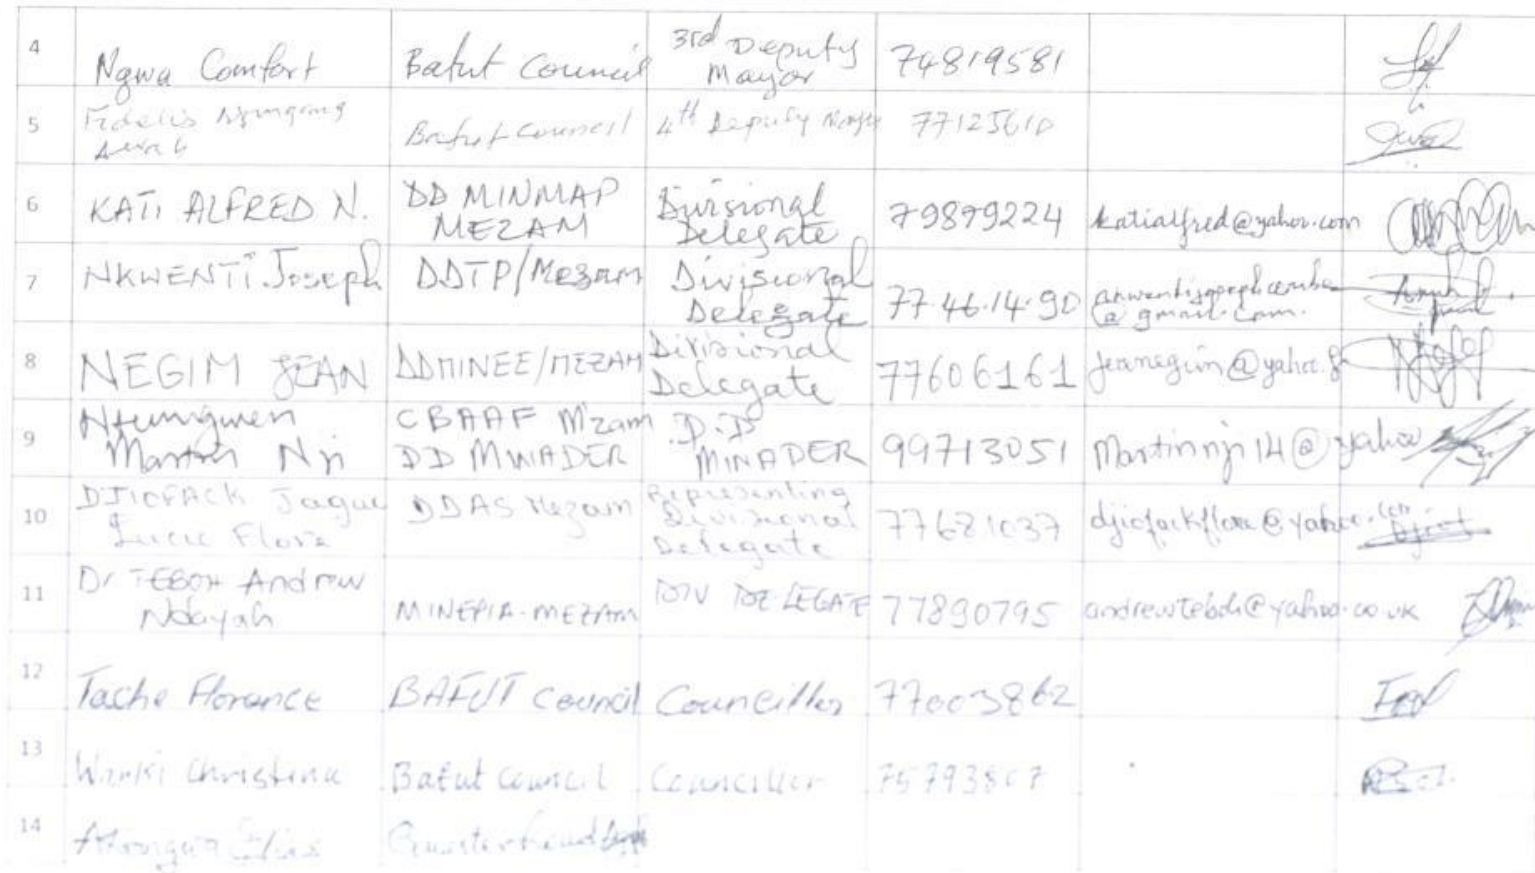 4 Ngwa Comfort Bafut Council 3rd Deputy Mayor 74819581
5 Fidelis Bafut Council 4th Deputy Mayor 77125610
6 KATI ALFRED N. DD MINMAP MEZAM Divisional Delegate 79879224 katialfred@yahoo.com
7 NKWENTI Joseph DDTP/Mezam Divisional Delegate 77.46.14.90 @gmail.com.
8 NEGIM JEAN DDMINEE/MEZAM Divisional Delegate 77606161 jeannegim@yahoo.fr
9 Ntumgwen Martin Nji CBAAF M'zam DD MINADER D.D MINADER 99713051 Martinnji14@yahoo
10 DJIOFACK Jague Lucie Flore DDAS Mezam Representing Divisional Delegate 77621037 djiofackflore@yahoo.com
11 Dr TEBOH Andrew Ndayah MINEPIA-MEZAM DIV DELEGATE 77890795 andrewteboh@yahoo.co.uk
12 Tache Florence BAFUT Council Councillor 77003862
13 Christina Bafut Council Councillor 75793807
14 Quarterhead